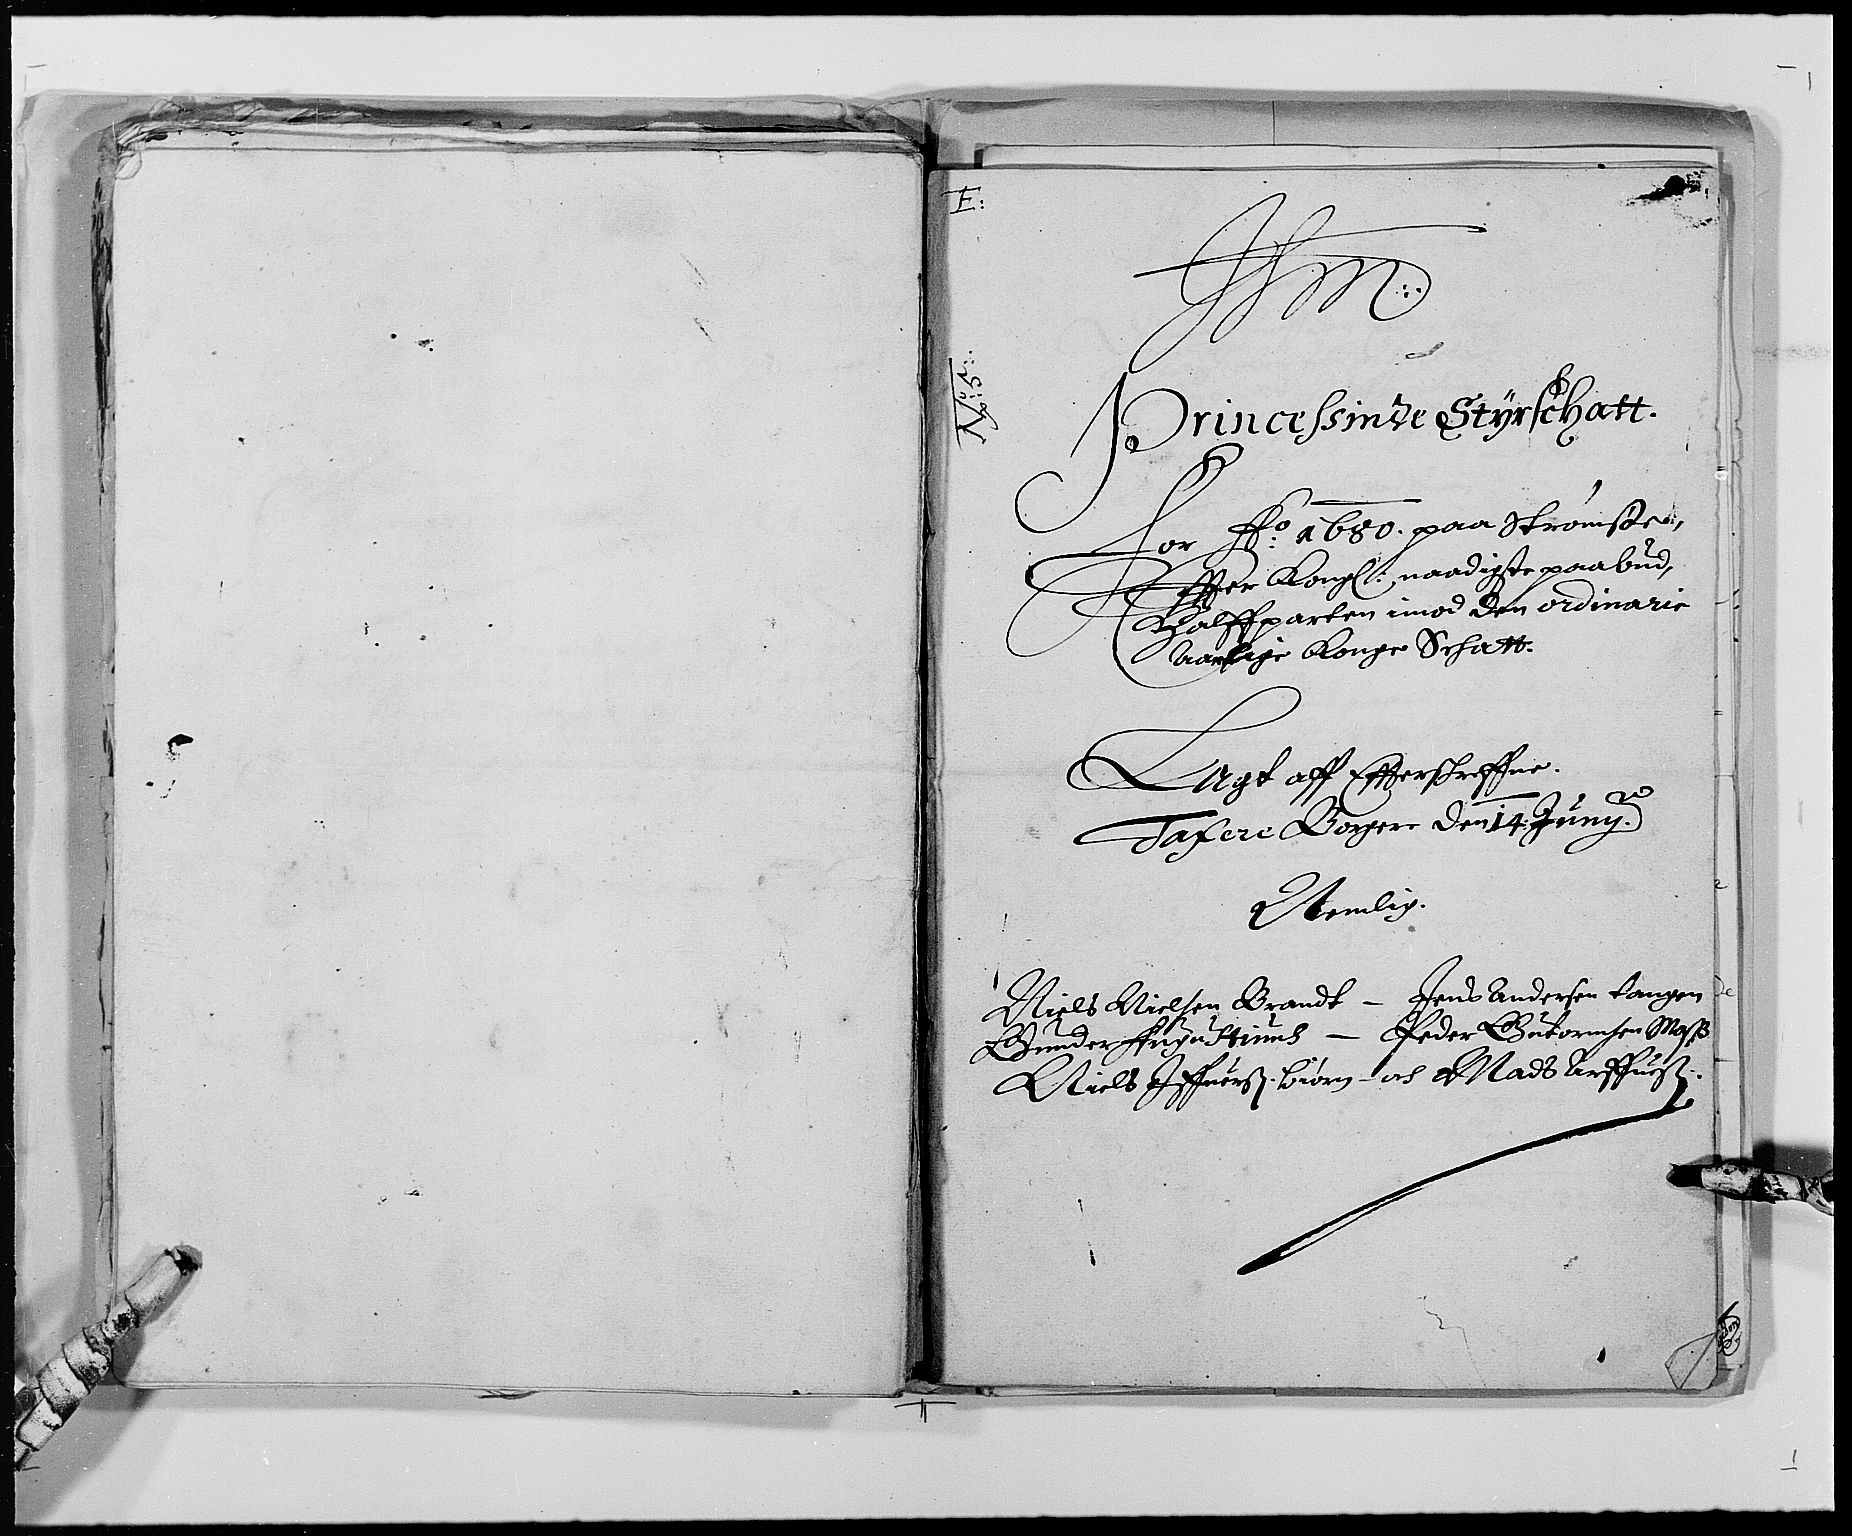 E:
No: 5:
Princessinde Styrschatt.
For Ao 1680. paa Strømsøe,
Effter Kongl: naadigste paabud,
Halffparten imod den ordinarie
aarlige Konge Schatt.
Lagt aff Effterschreffne.
Taxere Borgere den 14 Juny. Ao
Nemlig.
Niels Nielsen Brandt — Jens Andersen tangen
Gunder Augustinus — Peder Gutormsen Moss
Niels Iffuerss. biørn - och Mads Arffuess: